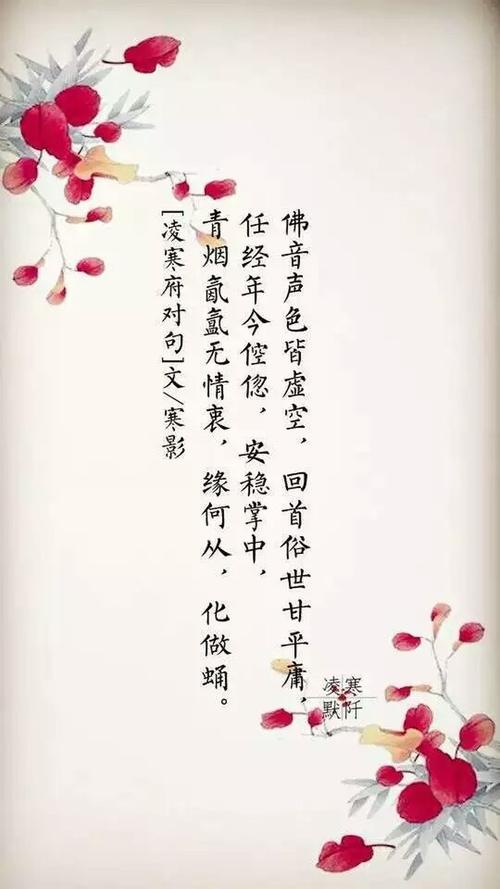 佛音声色皆虚空，回首俗世甘平庸，
任经年今倥偬，安稳掌中，
青烟氤氲无情衷，缘何从，化做蛹。
[凌寒府对句]文/寒影
凌寒
默阡